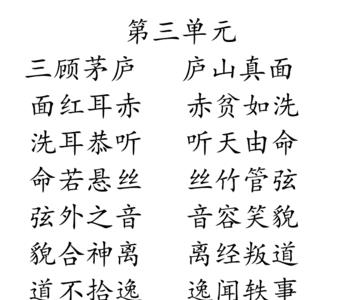 第三单元
三顾茅庐 庐山真面
面红耳赤 赤贫如洗
洗耳恭听 听天由命
命若悬丝 丝竹管弦
弦外之音 音容笑貌
貌合神离 离经叛道
道不拾逸 逸闻轶事